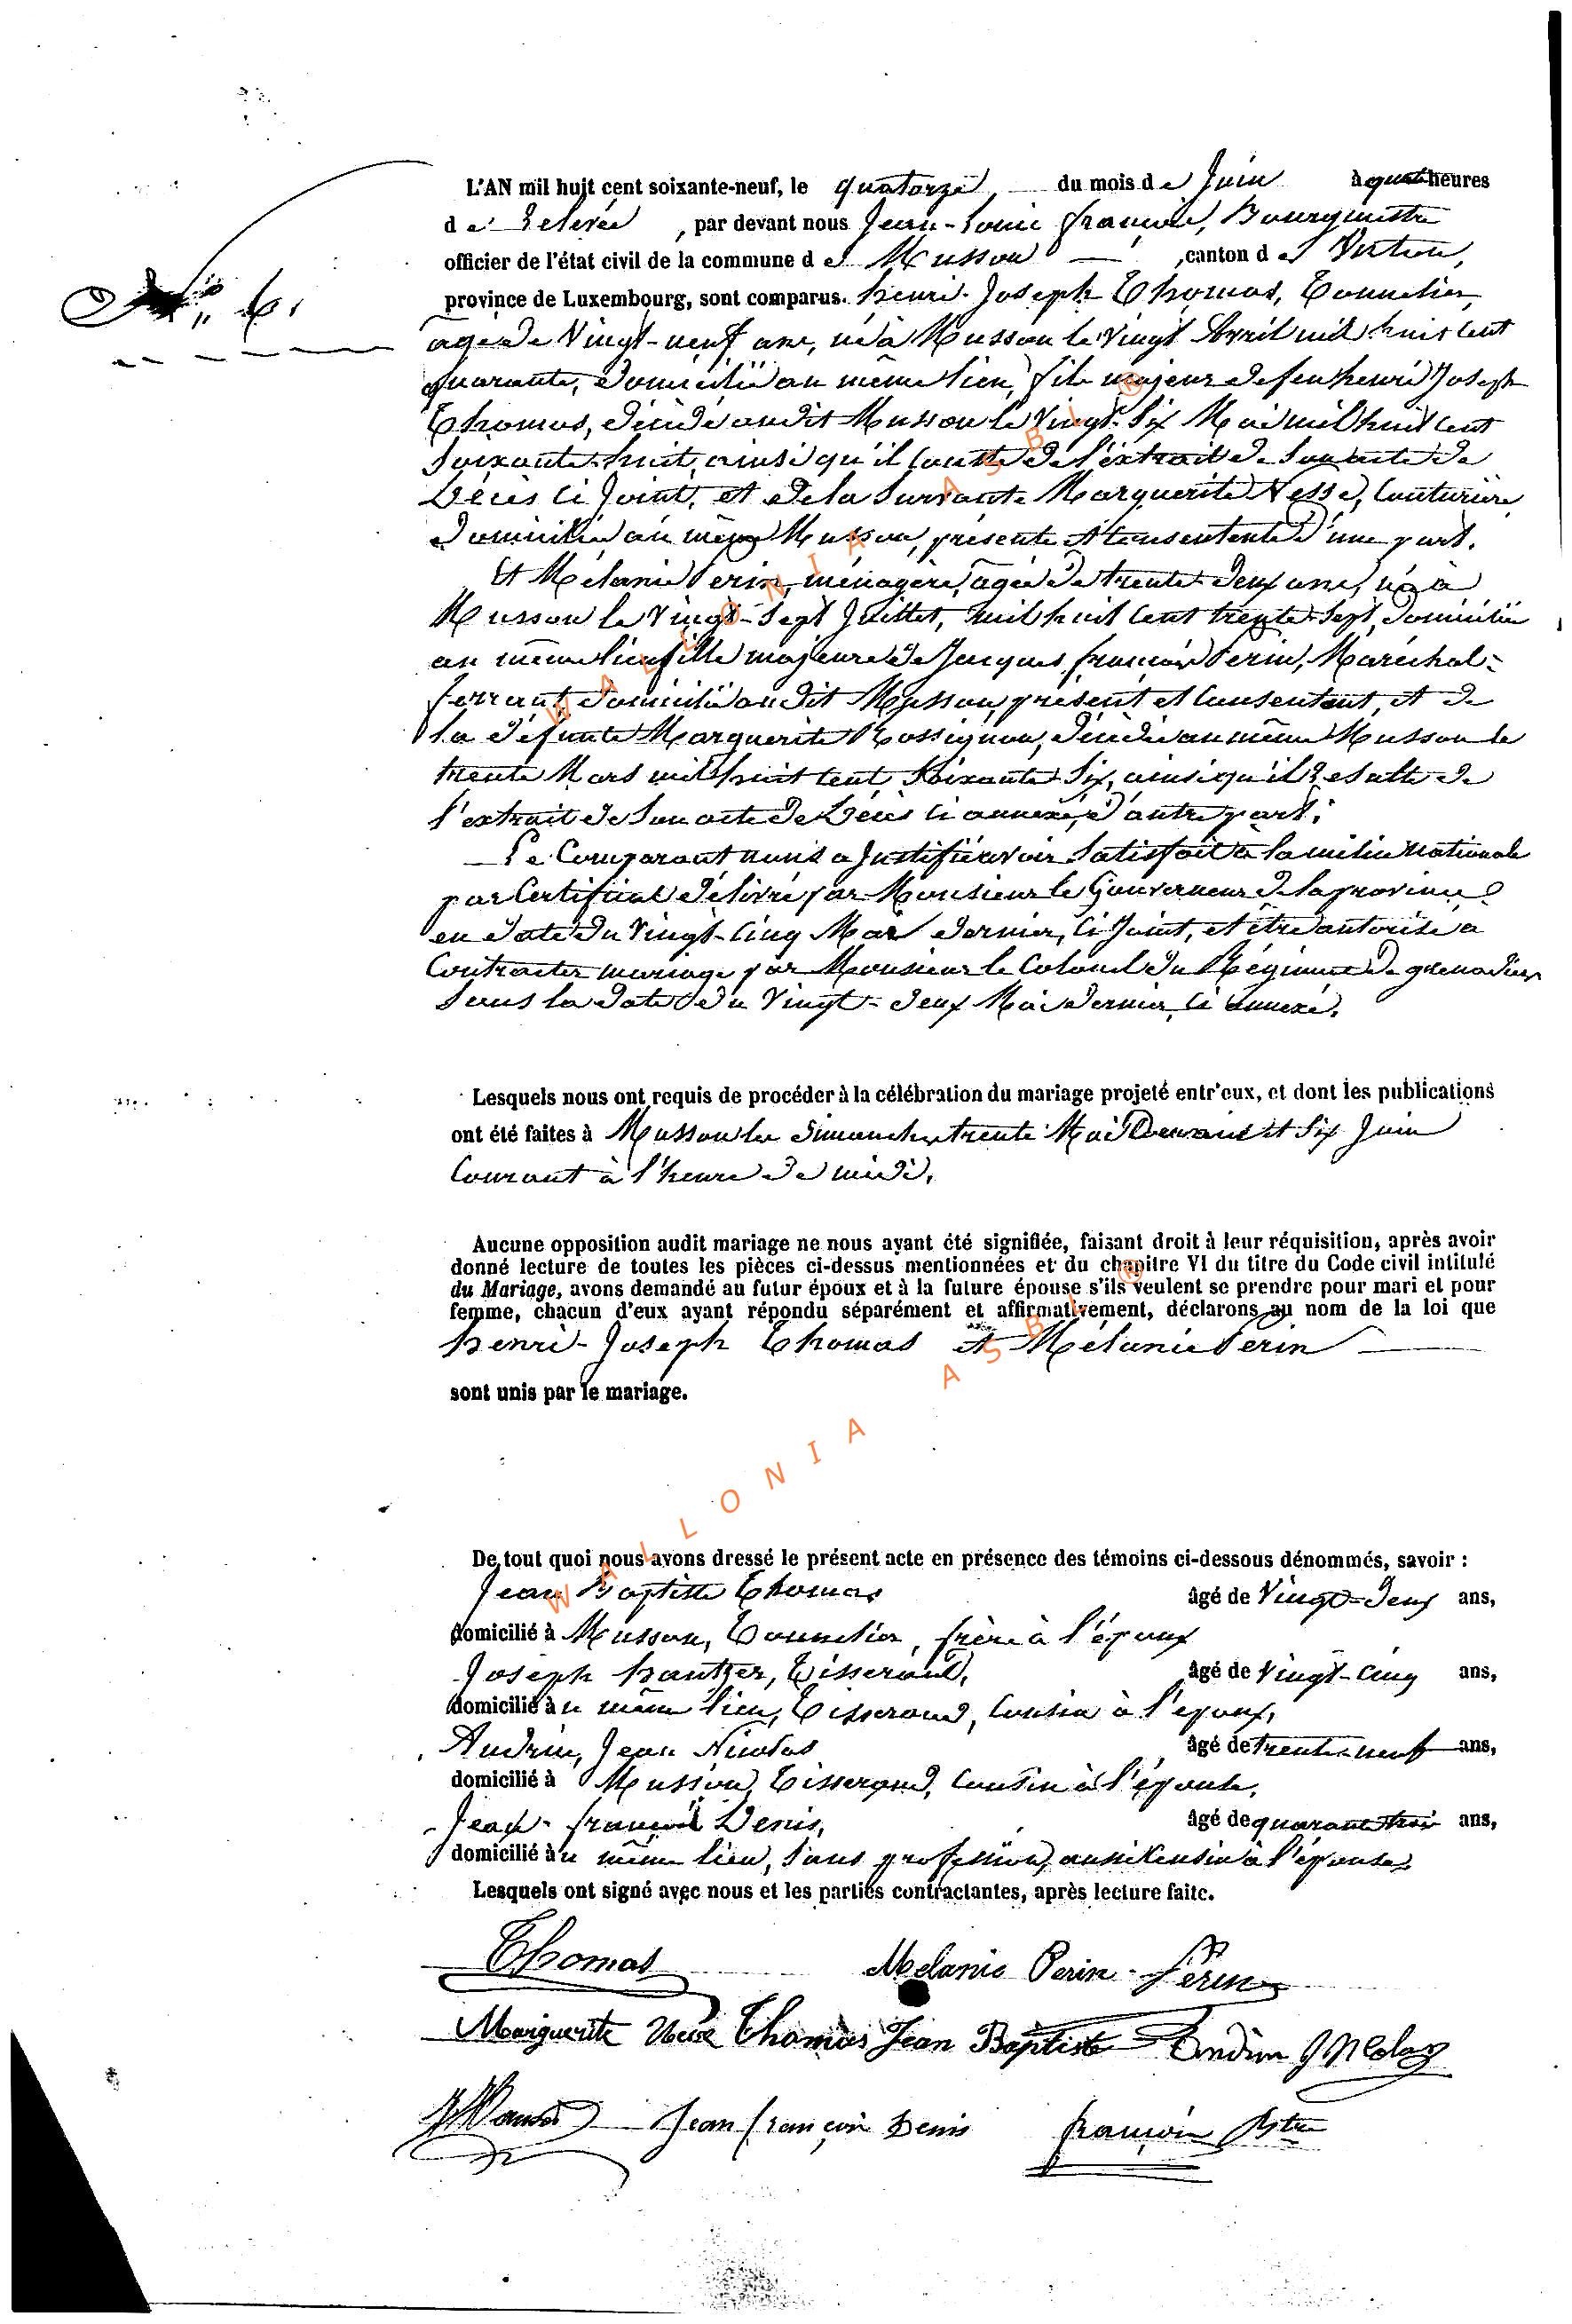 L'AN mil huit cent soixante-neuf, le quatorze, du mois de Juin à quatre heures
de Relevée, par devant nous Jean-Louis françois, Bourgmestre
officier de l'état civil de la commune de Musson, canton de Virton,
province de Luxembourg, sont comparus. henri-Joseph Thomas, Tonnelier,
âgé de Vingt-neuf ans, né à Musson le Vingt Avril mil huit cent
quarante, domicilié au même lieu, fils majeur de feu henri Joseph
Thomas, décédé audit Musson le Vingt-Six Mai mil huit cent
Soixante-huit, ainsi qu'il Conste de l'extrait de Son acte de
Décès Ci Joint, et de la Survivante Marguerite Nesse, Couturière
domiciliée au même Musson, présente et Consentente d'une part.
Et Mélanie Perin, ménagère, âgée de trente-deux ans, née à
Musson le Vingt-Sept Juillet, mil huit Cent trente-Sept, domiciliée
au même lieu fille majeure de Jacques françois Perin, Maréchal-
ferrant, domicilié audit Musson, présent et Consentant, et de
la défunte Marguerite Rossignon, décédée au même Musson le
trente Mars mil huit cent Soixante-Six, ainsi qu'il Résulte de
l'extrait de Son acte de Décès Ci annexé, d'autre part.
Le Comparant nous a Justifié avoir Satisfait à la milice Nationale
par Certificat délivré par Monsieur le Gouverneur de la province
en date du Vingt-Cinq Mai dernier, Ci Joint, et être autorisé à
Contracter mariage par Monsieur le Colonel du Régiment de grenadiers
Sous la date du Vingt-deux Mai dernier, Ci annexé.
Lesquels nous ont requis de procéder à la célébration du mariage projeté entr'eux, et dont les publications
ont été faites à Musson les dimanches trente Mai Dernier et Six Juin
Courant à l'heure de midi.
Aucune opposition audit mariage ne nous ayant été signifiée, faisant droit à leur réquisition, après avoir
donné lecture de toutes les pièces ci-dessus mentionnées et du chapitre VI du titre du Code civil intitulé
du Mariage, avons demandé au futur époux et à la future épouse s'ils veulent se prendre pour mari et pour
femme, chacun d'eux ayant répondu séparément et affirmativement, déclarons au nom de la loi que
henri-Joseph Thomas et Mélanie Perin
sont unis par le mariage.
De tout quoi nous avons dressé le présent acte en présence des témoins ci-dessous dénommés, savoir :
Jean Baptiste Thomas âgé de Vingt-deux ans,
domicilié à Musson, Tonnelier, frère à l'époux
Joseph hautzer, Tisserand, âgé de Vingt-Cinq ans,
domicilié au même lieu, Tisserand, Cousin à l'époux,
Andrin, Jean Nicolas âgé de trente-neuf ans,
domicilié à Musson, Tisserand, Cousin à l'épouse,
Jean-françois Denis, âgé de quarante trois ans,
domicilié au même lieu, Sans profession, aussi Cousin à l'épouse.
Lesquels ont signé avec nous et les parties contractantes, après lecture faite.
Thomas Melanie Perin - Perin
Marguerite Thomas Jean Baptiste Andrin J Nicolas
Jean françois Denis françois Bstre
WALLONIA ASBL ®
WALLONIA ASBL ®